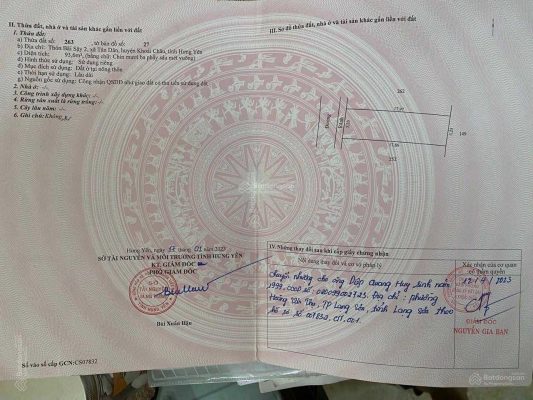 II. Thửa đất, nhà ở và tài sản khác gắn liền với đất
1. Thửa đất:
a) Thửa đất số: 263, tờ bản đồ số: 27
b) Địa chỉ: Thôn Bãi Sậy 2, xã Tân Dân, huyện Khoái Châu, tỉnh Hưng Yên
c) Diện tích: 93,6m², (bằng chữ: Chín mươi ba phẩy sáu mét vuông)
d) Hình thức sử dụng: Sử dụng riêng
đ) Mục đích sử dụng: Đất ở tại nông thôn
e) Thời hạn sử dụng: Lâu dài
g) Nguồn gốc sử dụng: Công nhận QSDĐ như giao đất có thu tiền sử dụng đất
2. Nhà ở: -/-
3. Công trình xây dựng khác: -/-
4. Rừng sản xuất là rừng trồng: -/-
5. Cây lâu năm: -/-
6. Ghi chú: Không
Hưng Yên, ngày 13 tháng 01 năm 2023
SỞ TÀI NGUYÊN VÀ MÔI TRƯỜNG TỈNH HƯNG YÊN
KT. GIÁM ĐỐC
PHÓ GIÁM ĐỐC
Bùi Xuân Hậu
Số vào sổ cấp GCN: CS07832
III. Sơ đồ thửa đất, nhà ở và tài sản khác gắn liền với đất
262
Đường
Vỉnh
149
252
IV. Những thay đổi sau khi cấp giấy chứng nhận
Nội dung thay đổi và cơ sở pháp lý
Xác nhận của cơ quan
có thẩm quyền
Chuyển nhượng cho ông Diệp Quang Huy sinh năm
1999, CCCD số: Địa chỉ: phường
Hoàng Văn Thụ, TP Lạng Sơn, tỉnh Lạng Sơn theo
hồ sơ số
12/4/2023
GIÁM ĐỐC
NGUYỄN GIA BAN
Batdongsan
Batdongsan